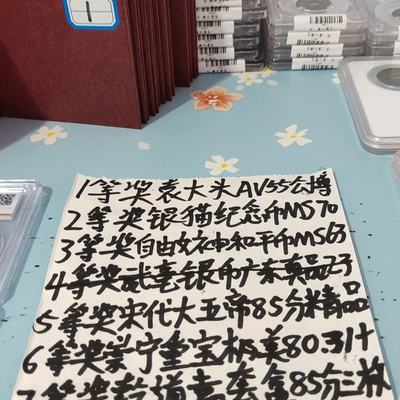 1
1等奖袁大头AU55公博
2等奖银猫纪念币MS70
3等奖自由女神和平币MS63
4等奖武毫银币广东美品23
5等奖宋代大五帝85分精品
6等奖崇宁重宝极美80.31
7等奖乾道青套盒85分三枚